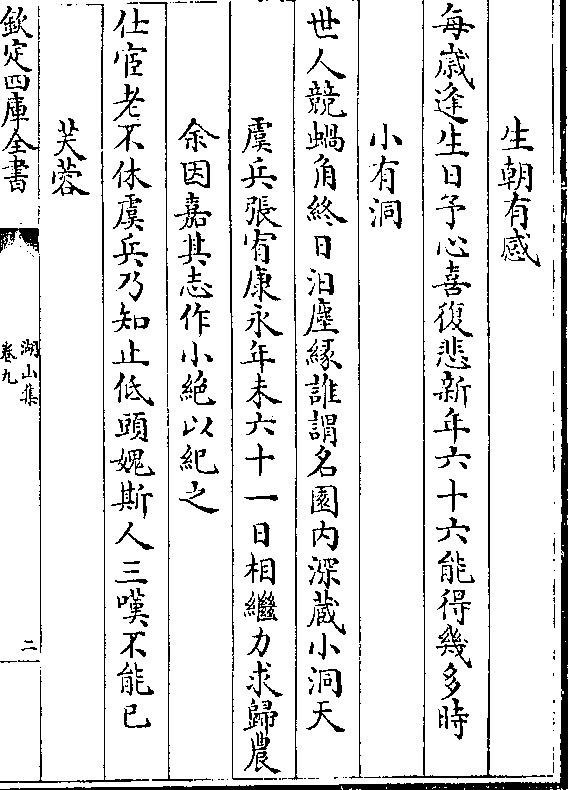 生朝有感
每歳逢生日予心喜復悲新年六十六能得幾多時
小有洞
世人競蝸角終日汨塵緣誰謂名園内深蔵小洞天
虞兵張宥康永年未六十一日相繼力求歸農
余因嘉其志作小絶以紀之
仕宦老不休虞兵乃知止低頭媿斯人三嘆不能已
芙蓉
欽定四庫全書
湖山集
卷九
二